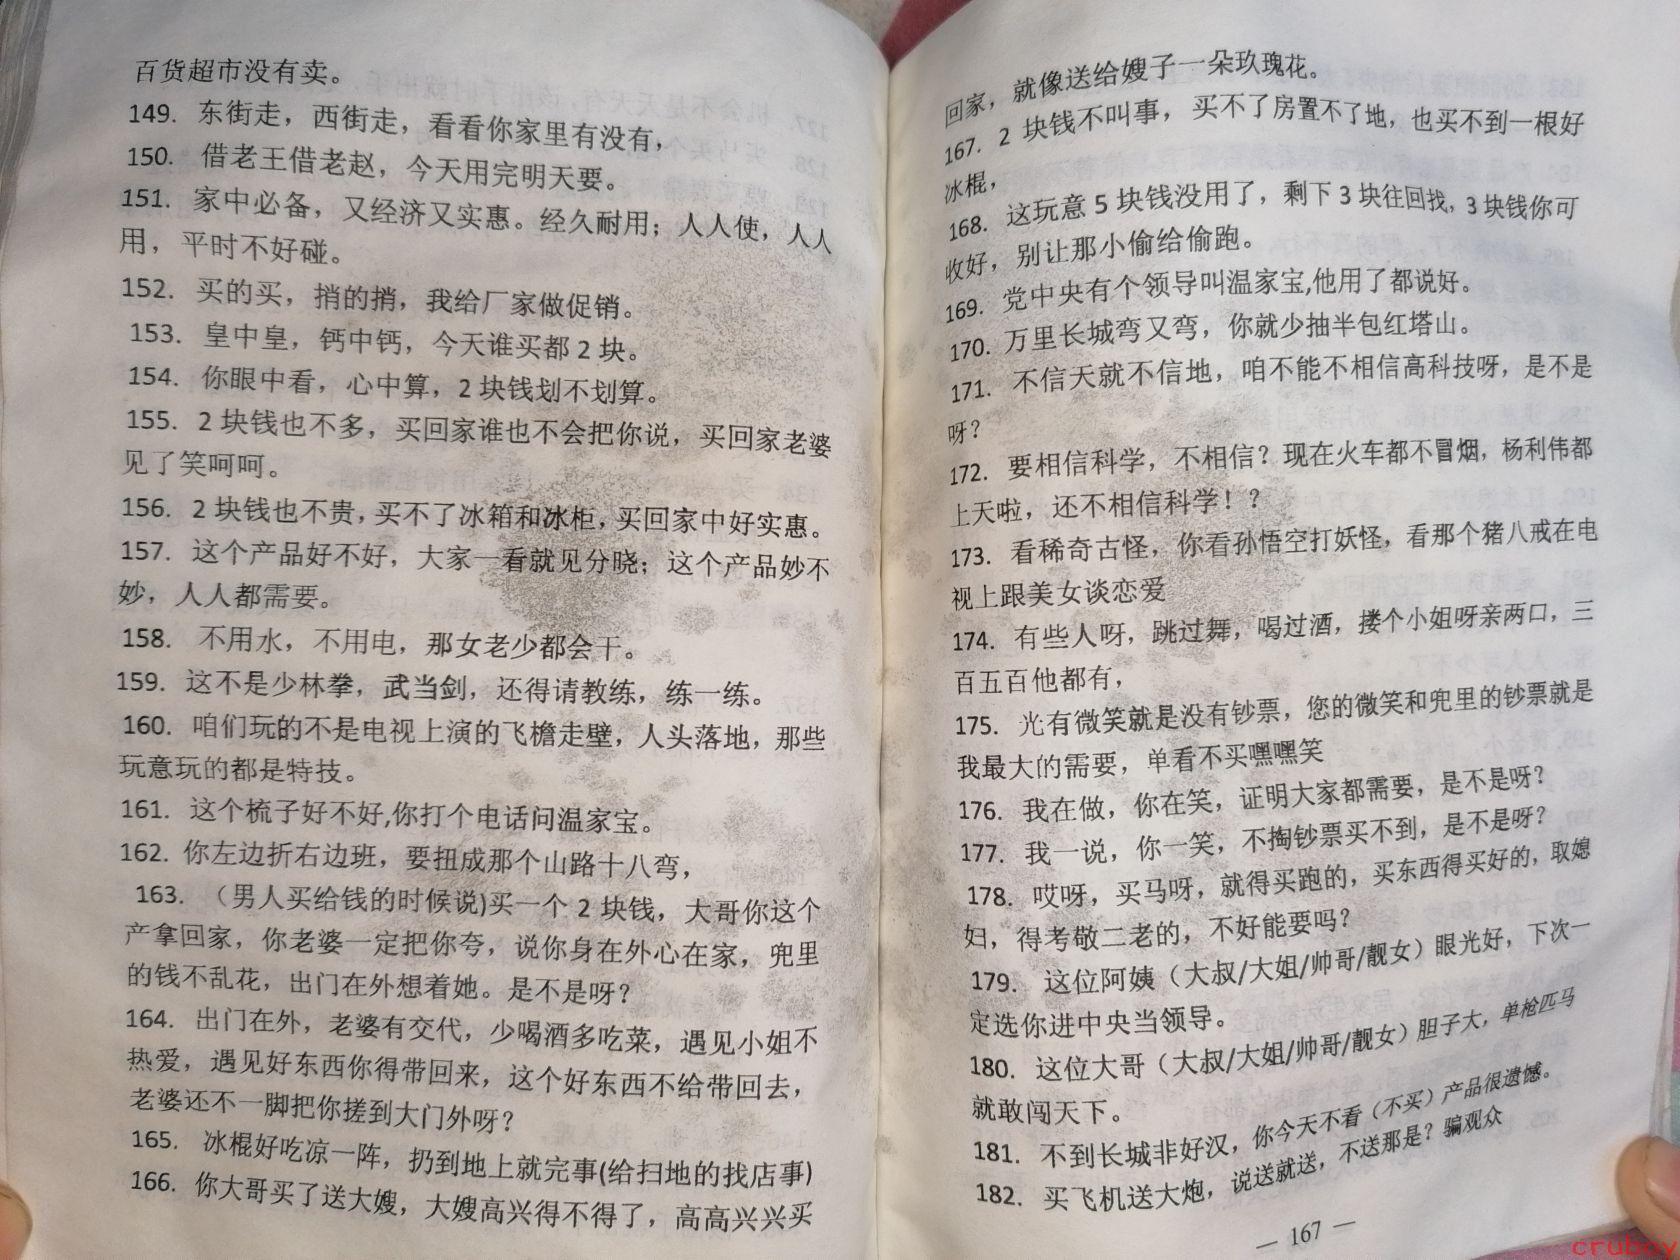 百货超市没有卖。
149. 东街走，西街走，看看你家里有没有，
150. 借老王借老赵，今天用完明天要。
151. 家中必备，又经济又实惠。经久耐用；人人使，人人
用，平时不好碰。
152. 买的买，捎的捎，我给厂家做促销。
153. 皇中皇，钙中钙，今天谁买都 2 块。
154. 你眼中看，心中算，2 块钱划不划算。
155. 2 块钱也不多，买回家谁也不会把你说，买回家老婆
见了笑呵呵。
156. 2 块钱也不贵，买不了冰箱和冰柜，买回家中好实惠。
157. 这个产品好不好，大家一看就见分晓；这个产品妙不
妙，人人都需要。
158. 不用水，不用电，那女老少都会干。
159. 这不是少林拳，武当剑，还得请教练，练一练。
160. 咱们玩的不是电视上演的飞檐走壁，人头落地，那些
玩意玩的都是特技。
161. 这个梳子好不好,你打个电话问温家宝。
162. 你左边折右边班，要扭成那个山路十八弯，
163. （男人买给钱的时候说)买一个 2 块钱，大哥你这个
产拿回家，你老婆一定把你夸，说你身在外心在家，兜里
的钱不乱花，出门在外想着她。是不是呀？
164. 出门在外，老婆有交代，少喝酒多吃菜，遇见小姐不
热爱，遇见好东西你得带回来，这个好东西不给带回去，
老婆还不一脚把你搓到大门外呀？
165. 冰棍好吃凉一阵，扔到地上就完事(给扫地的找店事)
166. 你大哥买了送大嫂，大嫂高兴得不得了，高高兴兴买
回家，就像送给嫂子一朵玖瑰花。
167. 2 块钱不叫事，买不了房置不了地，也买不到一根好
冰棍，
168. 这玩意 5 块钱没用了，剩下 3 块往回找，3 块钱你可
收好，别让那小偷给偷跑。
169. 党中央有个领导叫温家宝,他用了都说好。
170. 万里长城弯又弯，你就少抽半包红塔山。
171. 不信天就不信地，咱不能不相信高科技呀，是不是
呀？
172. 要相信科学，不相信？现在火车都不冒烟，杨利伟都
上天啦，还不相信科学！？
173. 看稀奇古怪，你看孙悟空打妖怪，看那个猪八戒在电
视上跟美女谈恋爱
174. 有些人呀，跳过舞，喝过酒，搂个小姐呀亲两口，三
百五百他都有，
175. 光有微笑就是没有钞票，您的微笑和兜里的钞票就是
我最大的需要，单看不买嘿嘿笑
176. 我在做，你在笑，证明大家都需要，是不是呀？
177. 我一说，你一笑，不掏钞票买不到，是不是呀？
178. 哎呀，买马呀，就得买跑的，买东西得买好的，取媳
妇，得考敬二老的，不好能要吗？
179. 这位阿姨（大叔/大姐/帅哥/靓女）眼光好，下次一
定选你进中央当领导。
180. 这位大哥（大叔/大姐/帅哥/靓女）胆子大，单枪匹马
就敢闯天下。
181. 不到长城非好汉，你今天不看（不买）产品很遗憾。
182. 买飞机送大炮，说送就送，不送那是？骗观众
— 167 —
cruboy